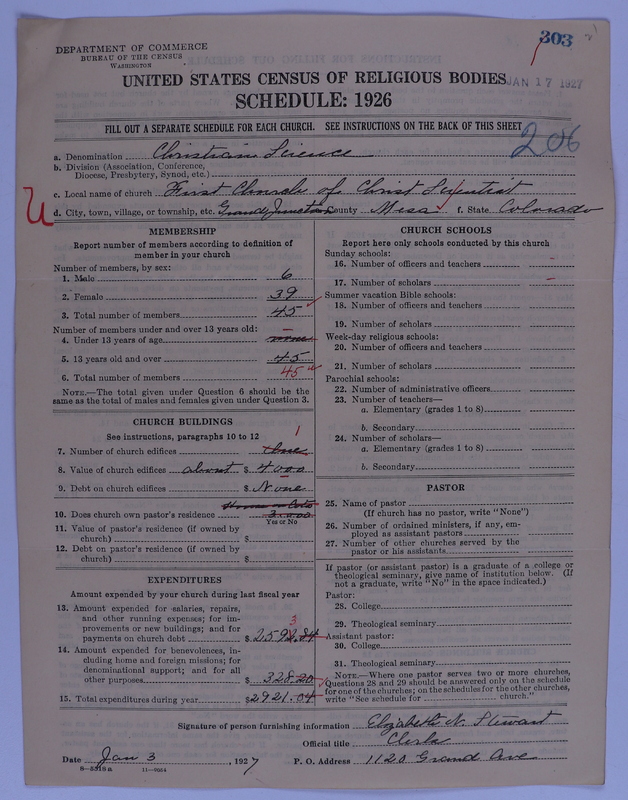 303
DEPARTMENT OF COMMERCE
BUREAU OF THE CENSUS
WASHINGTON
UNITED STATES CENSUS OF RELIGIOUS BODIES
JAN 17 1927
SCHEDULE: 1926
FILL OUT A SEPARATE SCHEDULE FOR EACH CHURCH. SEE INSTRUCTIONS ON THE BACK OF THIS SHEET
206
a. Denomination Christian Science
b. Division (Association, Conference,
Diocese, Presbytery, Synod, etc.)
c. Local name of church First Church of Christ Scientist
U
d. City, town, village, or township, etc. Grand Junction County Mesa f. State Colorado
MEMBERSHIP
Report number of members according to definition of
member in your church
Number of members, by sex:
1. Male 6
2. Female 39
3. Total number of members 45
Number of members under and over 13 years old:
4. Under 13 years of age none
5. 13 years old and over 45
6. Total number of members 45
NOTE.—The total given under Question 6 should be
same as the total of males and females given under Question 3.
CHURCH BUILDINGS
See instructions, paragraphs 10 to 12
1
7. Number of church edifices One
8. Value of church edifices about $ 4000
9. Debt on church edifices $ None
10. Does church own pastor's residence 3.000
Yes or No
11. Value of pastor's residence (if owned by
church) $
12. Debt on pastor's residence (if owned by
church) $
EXPENDITURES
Amount expended by your church during last fiscal year
13. Amount expended for salaries, repairs,
and other running expenses; for im-
provements or new buildings; and for
payments on church debt $ 2592.84
3
14. Amount expended for benevolences, in-
cluding home and foreign missions; for
denominational support; and for all
other purposes $ 328.20
15. Total expenditures during year $ 2921.04
CHURCH SCHOOLS
Report here only schools conducted by this church
Sunday schools:
16. Number of officers and teachers -
17. Number of scholars -
Summer vacation Bible schools:
18. Number of officers and teachers
19. Number of scholars
Week-day religious schools:
20. Number of officers and teachers
21. Number of scholars
Parochial schools:
22. Number of administrative officers
23. Number of teachers—
a. Elementary (grades 1 to 8)
b. Secondary
24. Number of scholars—
a. Elementary (grades 1 to 8)
b. Secondary
PASTOR
25. Name of pastor
(If church has no pastor, write "None")
26. Number of ordained ministers, if any, em-
ployed as assistant pastors
27. Number of other churches served by the
pastor or his assistants
If pastor (or assistant pastor) is a graduate of a college or
theological seminary, give name of institution below. (If
not a graduate, write "No" in the space indicated.)
Pastor:
28. College
29. Theological seminary
Assistant pastor:
30. College
31. Theological seminary
NOTE.—Where one pastor serves two or more churches,
Questions 28 and 29 should be answered only on the schedule
for one of the churches; on the schedules for the other churches,
write "See schedule for church."
Signature of person furnishing information Elizabeth N. Stewart
Official title Clerk
Date Jan 3, 1927 P. O. Address 1120 Grand Ave
8—5319a 11—9064